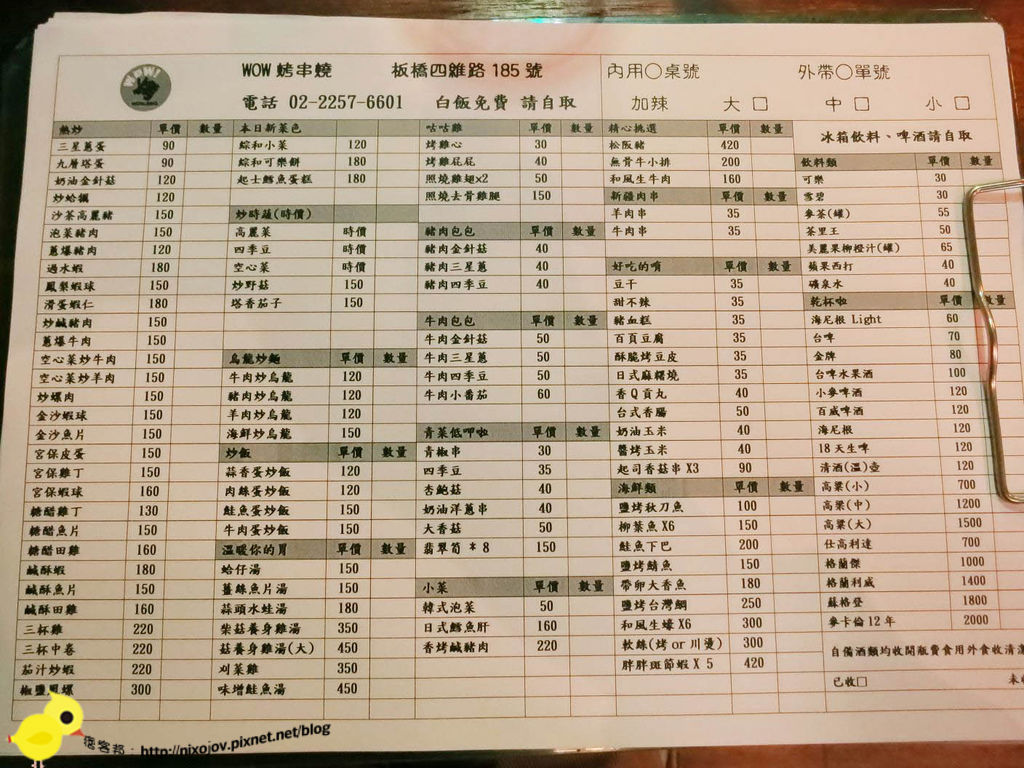 WOW 烤串燒 板橋四維路 185 號 內用○桌號 外帶○單號
電話 02-2257-6601 白飯免費 請自取 加辣 大 □ 中 □ 小 □
熱炒 單價 數量
三星蔥蛋 90
九層塔蛋 90
奶油金針菇 120
炒蛤蠣 120
沙茶高麗豬 150
泡菜豬肉 150
蔥爆豬肉 120
過水蝦 180
鳳梨蝦球 150
滑蛋蝦仁 180
炒鹹豬肉 150
蔥爆牛肉 150
空心菜炒牛肉 150
空心菜炒羊肉 150
炒螺肉 150
金沙蝦球 150
金沙魚片 150
宮保皮蛋 150
宮保雞丁 150
宮保蝦球 160
糖醋雞丁 130
糖醋魚片 150
糖醋田雞 160
鹹酥蝦 180
鹹酥魚片 150
鹹酥田雞 160
三杯雞 220
三杯中卷 220
茄汁炒蝦 220
椒鹽鳳螺 300
本日新菜色
綜和小菜 120
綜和可樂餅 180
起士鱈魚蛋糕 180
炒時蔬(時價)
高麗菜 時價
四季豆 時價
空心菜 時價
炒野菇 150
塔香茄子 150
烏龍炒麵 單價 數量
牛肉炒烏龍 120
豬肉炒烏龍 120
羊肉炒烏龍 120
海鮮炒烏龍 150
炒飯 單價 數量
蒜香蛋炒飯 120
肉絲蛋炒飯 120
鮭魚蛋炒飯 150
牛肉蛋炒飯 150
溫暖你的胃 單價 數量
蛤仔湯 150
薑絲魚片湯 150
蒜頭水蛙湯 180
柴菇養身雞湯 350
菇養身雞湯(大) 450
刈菜雞 350
味增鮭魚湯 450
咕咕雞 單價 數量
烤雞心 30
烤雞屁屁 40
照燒雞翅x2 50
照燒去骨雞腿 150
豬肉包包 單價 數量
豬肉金針菇 40
豬肉三星蔥 40
豬肉四季豆 40
牛肉包包 單價 數量
牛肉金針菇 50
牛肉三星蔥 50
牛肉四季豆 50
牛肉小番茄 60
青菜低呷啦 單價 數量
青椒串 30
四季豆 35
杏鮑菇 40
奶油洋蔥串 40
大香菇 50
翡翠筍 * 8 150
小菜 單價 數量
韓式泡菜 50
日式鱈魚肝 160
香烤鹹豬肉 220
精心挑選 單價 數量
松阪豬 420
無骨牛小排 200
和風生牛肉 160
新疆肉串 單價 數量
羊肉串 35
牛肉串 35
好吃的唷 單價 數量
豆干 35
甜不辣 35
豬血糕 35
百頁豆腐 35
酥脆烤豆皮 35
日式麻糬燒 35
香Q貢丸 40
台式香腸 50
奶油玉米 40
醬烤玉米 40
起司香菇串 X3 90
海鮮類 單價 數量
鹽烤秋刀魚 100
柳葉魚 X6 150
鮭魚下巴 200
鹽烤鯖魚 150
帶卵大香魚 180
鹽烤台灣鯛 250
和風生蠔 X6 300
軟絲(烤 or 川燙) 300
胖胖斑節蝦 X 5 420
冰箱飲料、啤酒請自取
飲料類 單價 數量
可樂 30
雪碧 30
麥茶(罐) 55
茶里王 50
美麗果柳橙汁(罐) 65
蘋果西打 40
礦泉水 40
乾杯啦 單價 數量
海尼根 Light 60
台啤 70
金牌 80
台啤水果酒 100
小麥啤酒 120
百威啤酒 120
海尼根 120
18 天生啤 120
清酒(溫)壺 120
高粱(小) 700
高粱(中) 1200
高粱(大) 1500
仕高利達 700
格蘭傑 1000
格蘭利威 1400
蘇格登 1800
麥卡倫 12 年 2000
自備酒類均收開瓶費食用外食收清潔
已收□ 未收
痞客邦 : http://nixojov.pixnet.net/blog